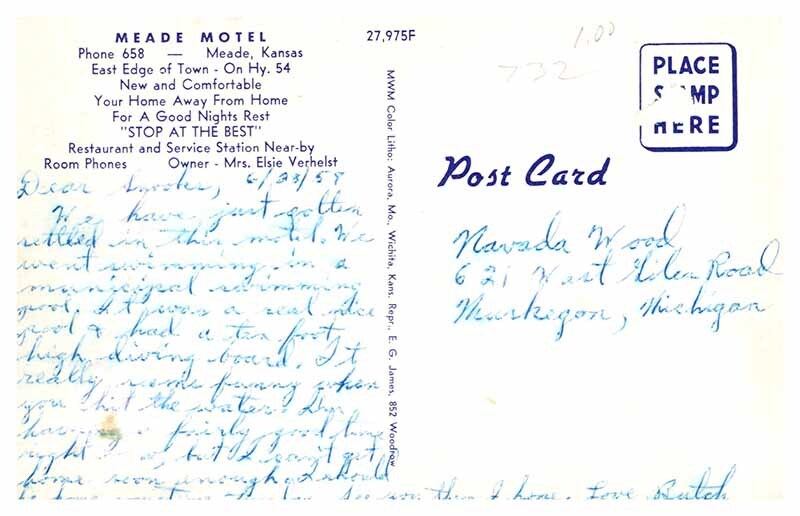 MEADE MOTEL
Phone 658 — Meade, Kansas
East Edge of Town - On Hy. 54
New and Comfortable
Your Home Away From Home
For A Good Nights Rest
"STOP AT THE BEST"
Restaurant and Service Station Near-by
Room Phones Owner - Mrs. Elsie Verhelst
Dear Snooks, 6/23/59
We have just gotten
settled in this motel. We
went swimming in a
municipal swimming
pool. It was a real nice
pool & had a ten foot
high diving board. It
really seems funny when
you hit the water. I'm
having a fairly good time
right, but I can't get
home soon enough. I should
be home. See you then I hope. Love Butch
27,975F
MWM Color Litho: Aurora, Mo., Wichita, Kans. Repr., E. G. James, 852 Woodrow
1.00
732
PLACE
STAMP
HERE
Post Card
Navada Wood
621 West Giles Road
Muskegon, Michigan